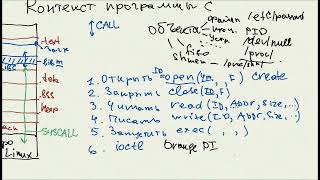 Контекст программы C
CALL
text
libm
data
bss
heap
SYSCALL
Linux
объекта
файлы /etc/passwd
PID
/dev/null
/proc/
shmem
1. Открыть ID=open(Im, F) create
2. Закрыть close(ID, F)
3. Читать read(ID, Addr, Size, ..)
4. Писать write(ID, Addr, Size, ..)
5. Запустить exec( , , )
6. ioctl Orange PI